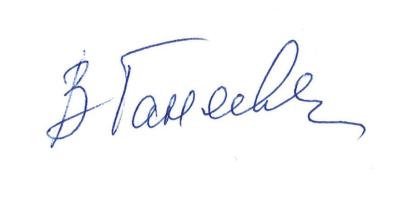 В Ганеева